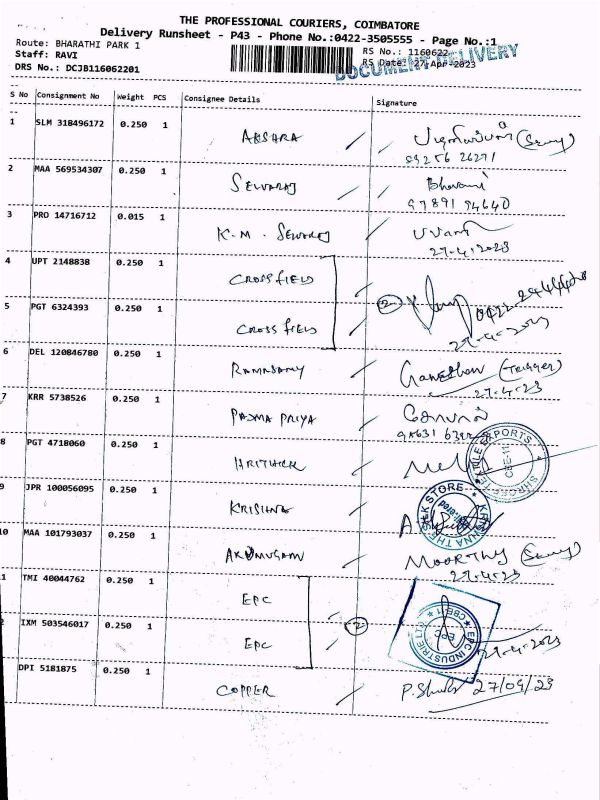 THE PROFESSIONAL COURIERS, COIMBATORE
Delivery Runsheet - P43 - Phone No.:0422-3505555 - Page No.:1
Route: BHARATHI PARK 1 RS No.: 1160622
Staff: RAVI RS Date: 27-Apr-2023
DRS No.: DCJB116062201 DOCUMENT DELIVERY
S No Consignment No Weight PCS Consignee Details Signature
1 SLM 318496172 0.250 1 AKSHARA
2 MAA 569534307 0.250 1 SELVARAJ
97891 94640
3 PRO 14716712 0.015 1 K.M. SELVARAJ
27-4-2023
4 UPT 2148838 0.250 1 CROSSFIELD
5 PGT 6324393 0.250 1 CROSSFIELD 2
27-4-2023
6 DEL 120846780 0.250 1 RAMASAMY (Trigger)
27-4-23
7 KRR 5738526 0.250 1 PADMA PRIYA
8 PGT 4718060 0.250 1 HRITHICK
9 JPR 100056095 0.250 1 KRISHNA
10 MAA 101793037 0.250 1 ARUMUGAM MOORTHY
27-4-23
1 TMI 40044762 0.250 1 EPC
2 IXM 503546017 0.250 1 EPC 2 EPC INDUSTRIE LTD. CBE 11 EPC 27-4-2023
DPI 5181875 0.250 1 COPPER 27/04/23